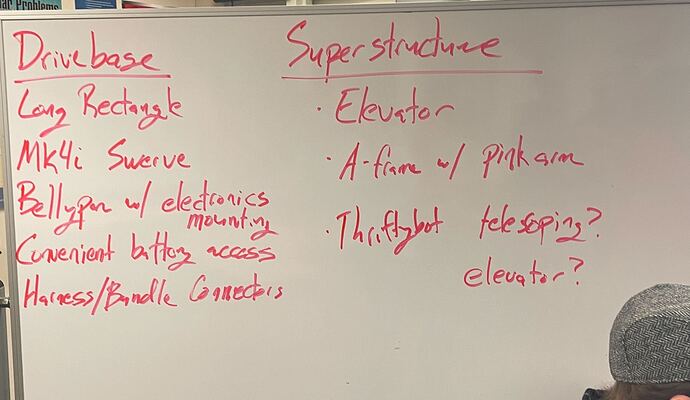 lar Problems
Drivebase
Long Rectangle
Mk4i Swerve
Bellypan w/ electronics
mounting
Convenient battery access
Harness/Bundle Connectors
Superstructure
· Elevator
· A-frame w/ pink arm
· Thriftybot telescoping?
elevator?